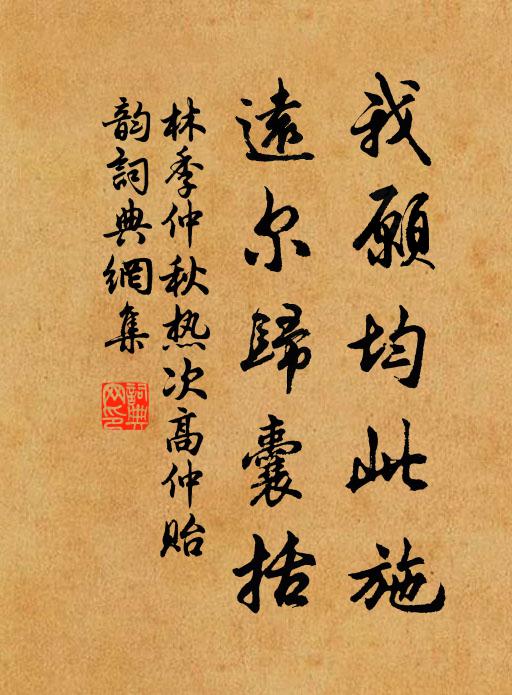 我願均此施
遠尔歸囊括
林季仲秋热次高仲貽
韵詞典網集
詞典网印